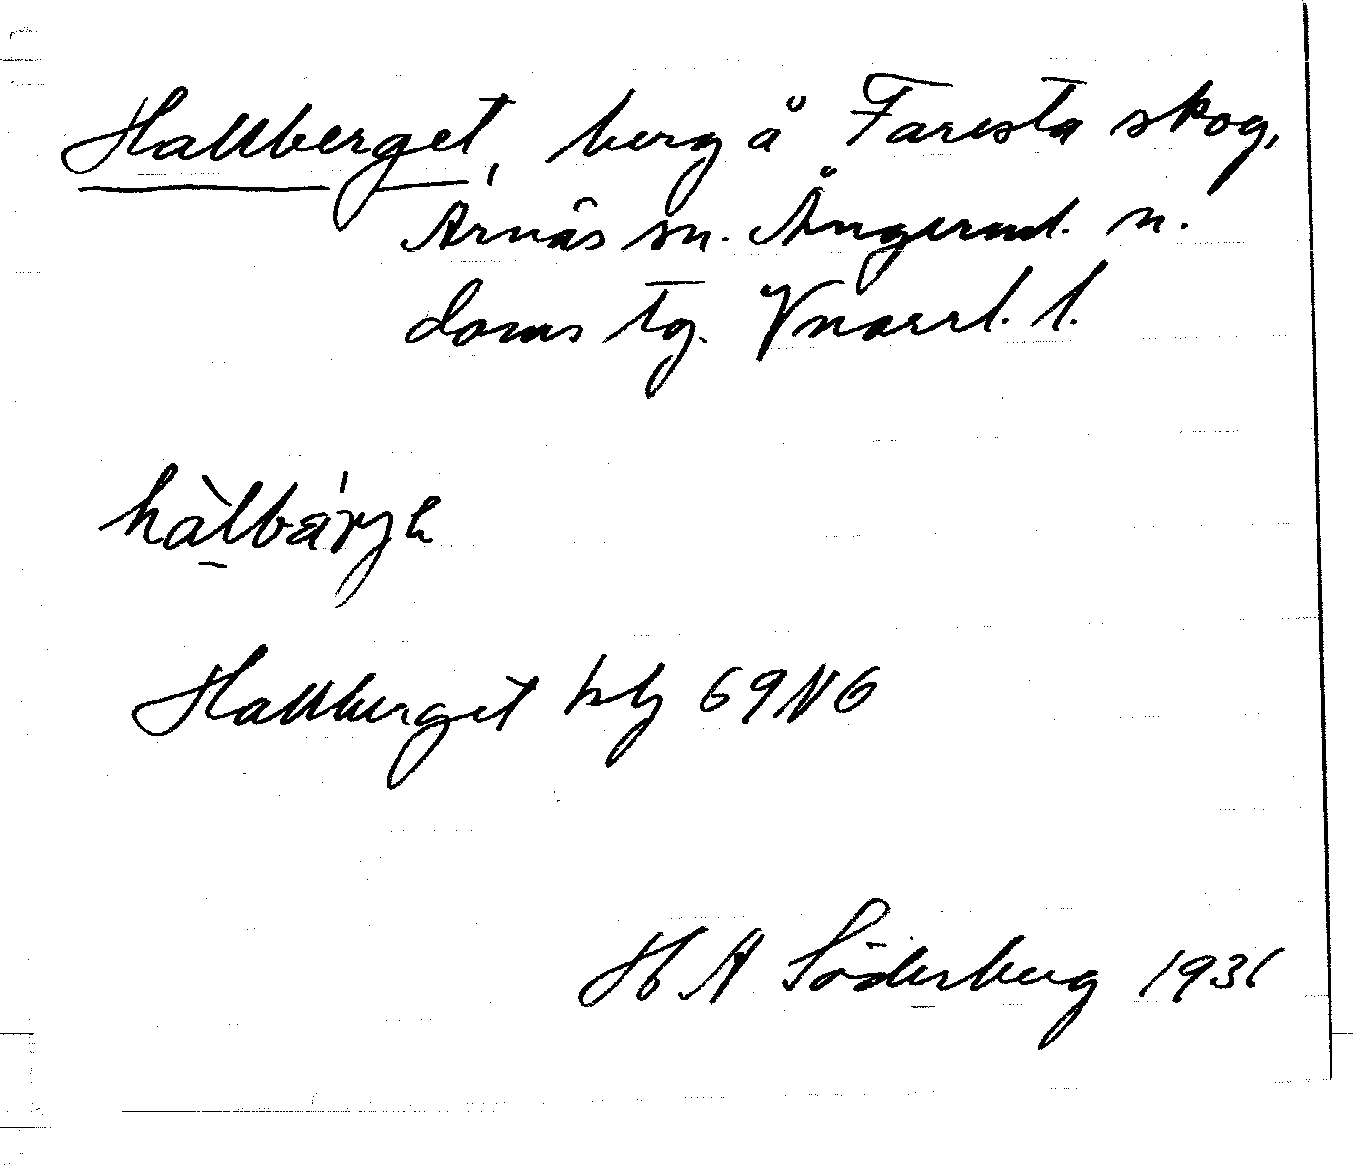 Hallberget, berg å Faresta skog,
Arnäs sn. Ångerml. n.
doms tg. Vnorrl. l.
hàlbárjɐ
Hallberget kbl 69N6
H A Söderberg 1931